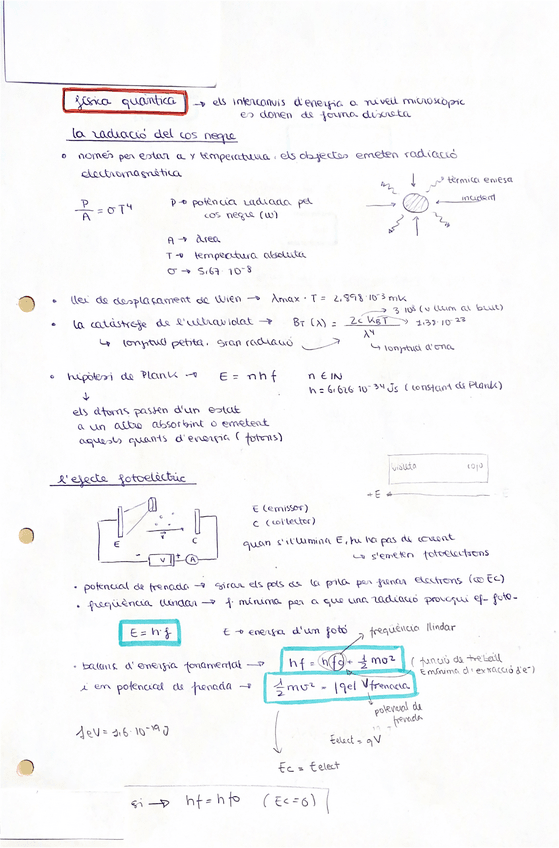 física quàntica → els intercanvis d'energia a nivell microscòpic
es donen de forma discreta
la radiació del cos negre
• només per estar a x temperatura, els objectes emeten radiació
electromagnètica
P/A = σT⁴
P → potència radiada pel
cos negre (W)
A → àrea
T → temperatura absoluta
σ → 5,67 · 10⁻⁸
tèrmica emesa
incident
• llei de desplaçament de Wien → λmax · T = 2,898 · 10⁻³ mK
• la catàstrofe de l'ultraviolat → B_T (λ) = 2c k_B T / λ⁴
3·10⁸ (v llum al buit)
1.38·10⁻²³
↳ longitud petita, gran radiació
↳ longitud d'ona
• hipòtesi de Plank → E = n h f
n ∈ ℕ
h = 6,626 · 10⁻³⁴ Js (constant de Plank)
↓
els àtoms passen d'un estat
a un altre absorbint o emetent
aquests quants d'energia (fotons)
l'efecte fotoelèctric
violeta
roig
+E
E
E
C
V
A
E (emissor)
C (col·lector)
quan s'il·lumina E, hi ha pas de corrent
↳ s'emeten fotoelectrons
• potencial de frenada → girar els pols de la pila per frenar electrons (⇔ Ec)
• freqüència llindar → f. mínima per a que una radiació provoqui ef. foto-
E = h·f
E → energia d'un fotó
freqüència llindar
• balanç d'energia fonamental → hf = hf₀ + ½ mv²
(funció de treball
E mínima d'extracció d'e⁻)
i en potencial de frenada → ½ mv² = |qe| Vfrenada
potencial de
frenada
1 eV = 1.6 · 10⁻¹⁹ J
Eelect = qV
Ec = Eelect
si → hf = hf₀ (Ec = 0)